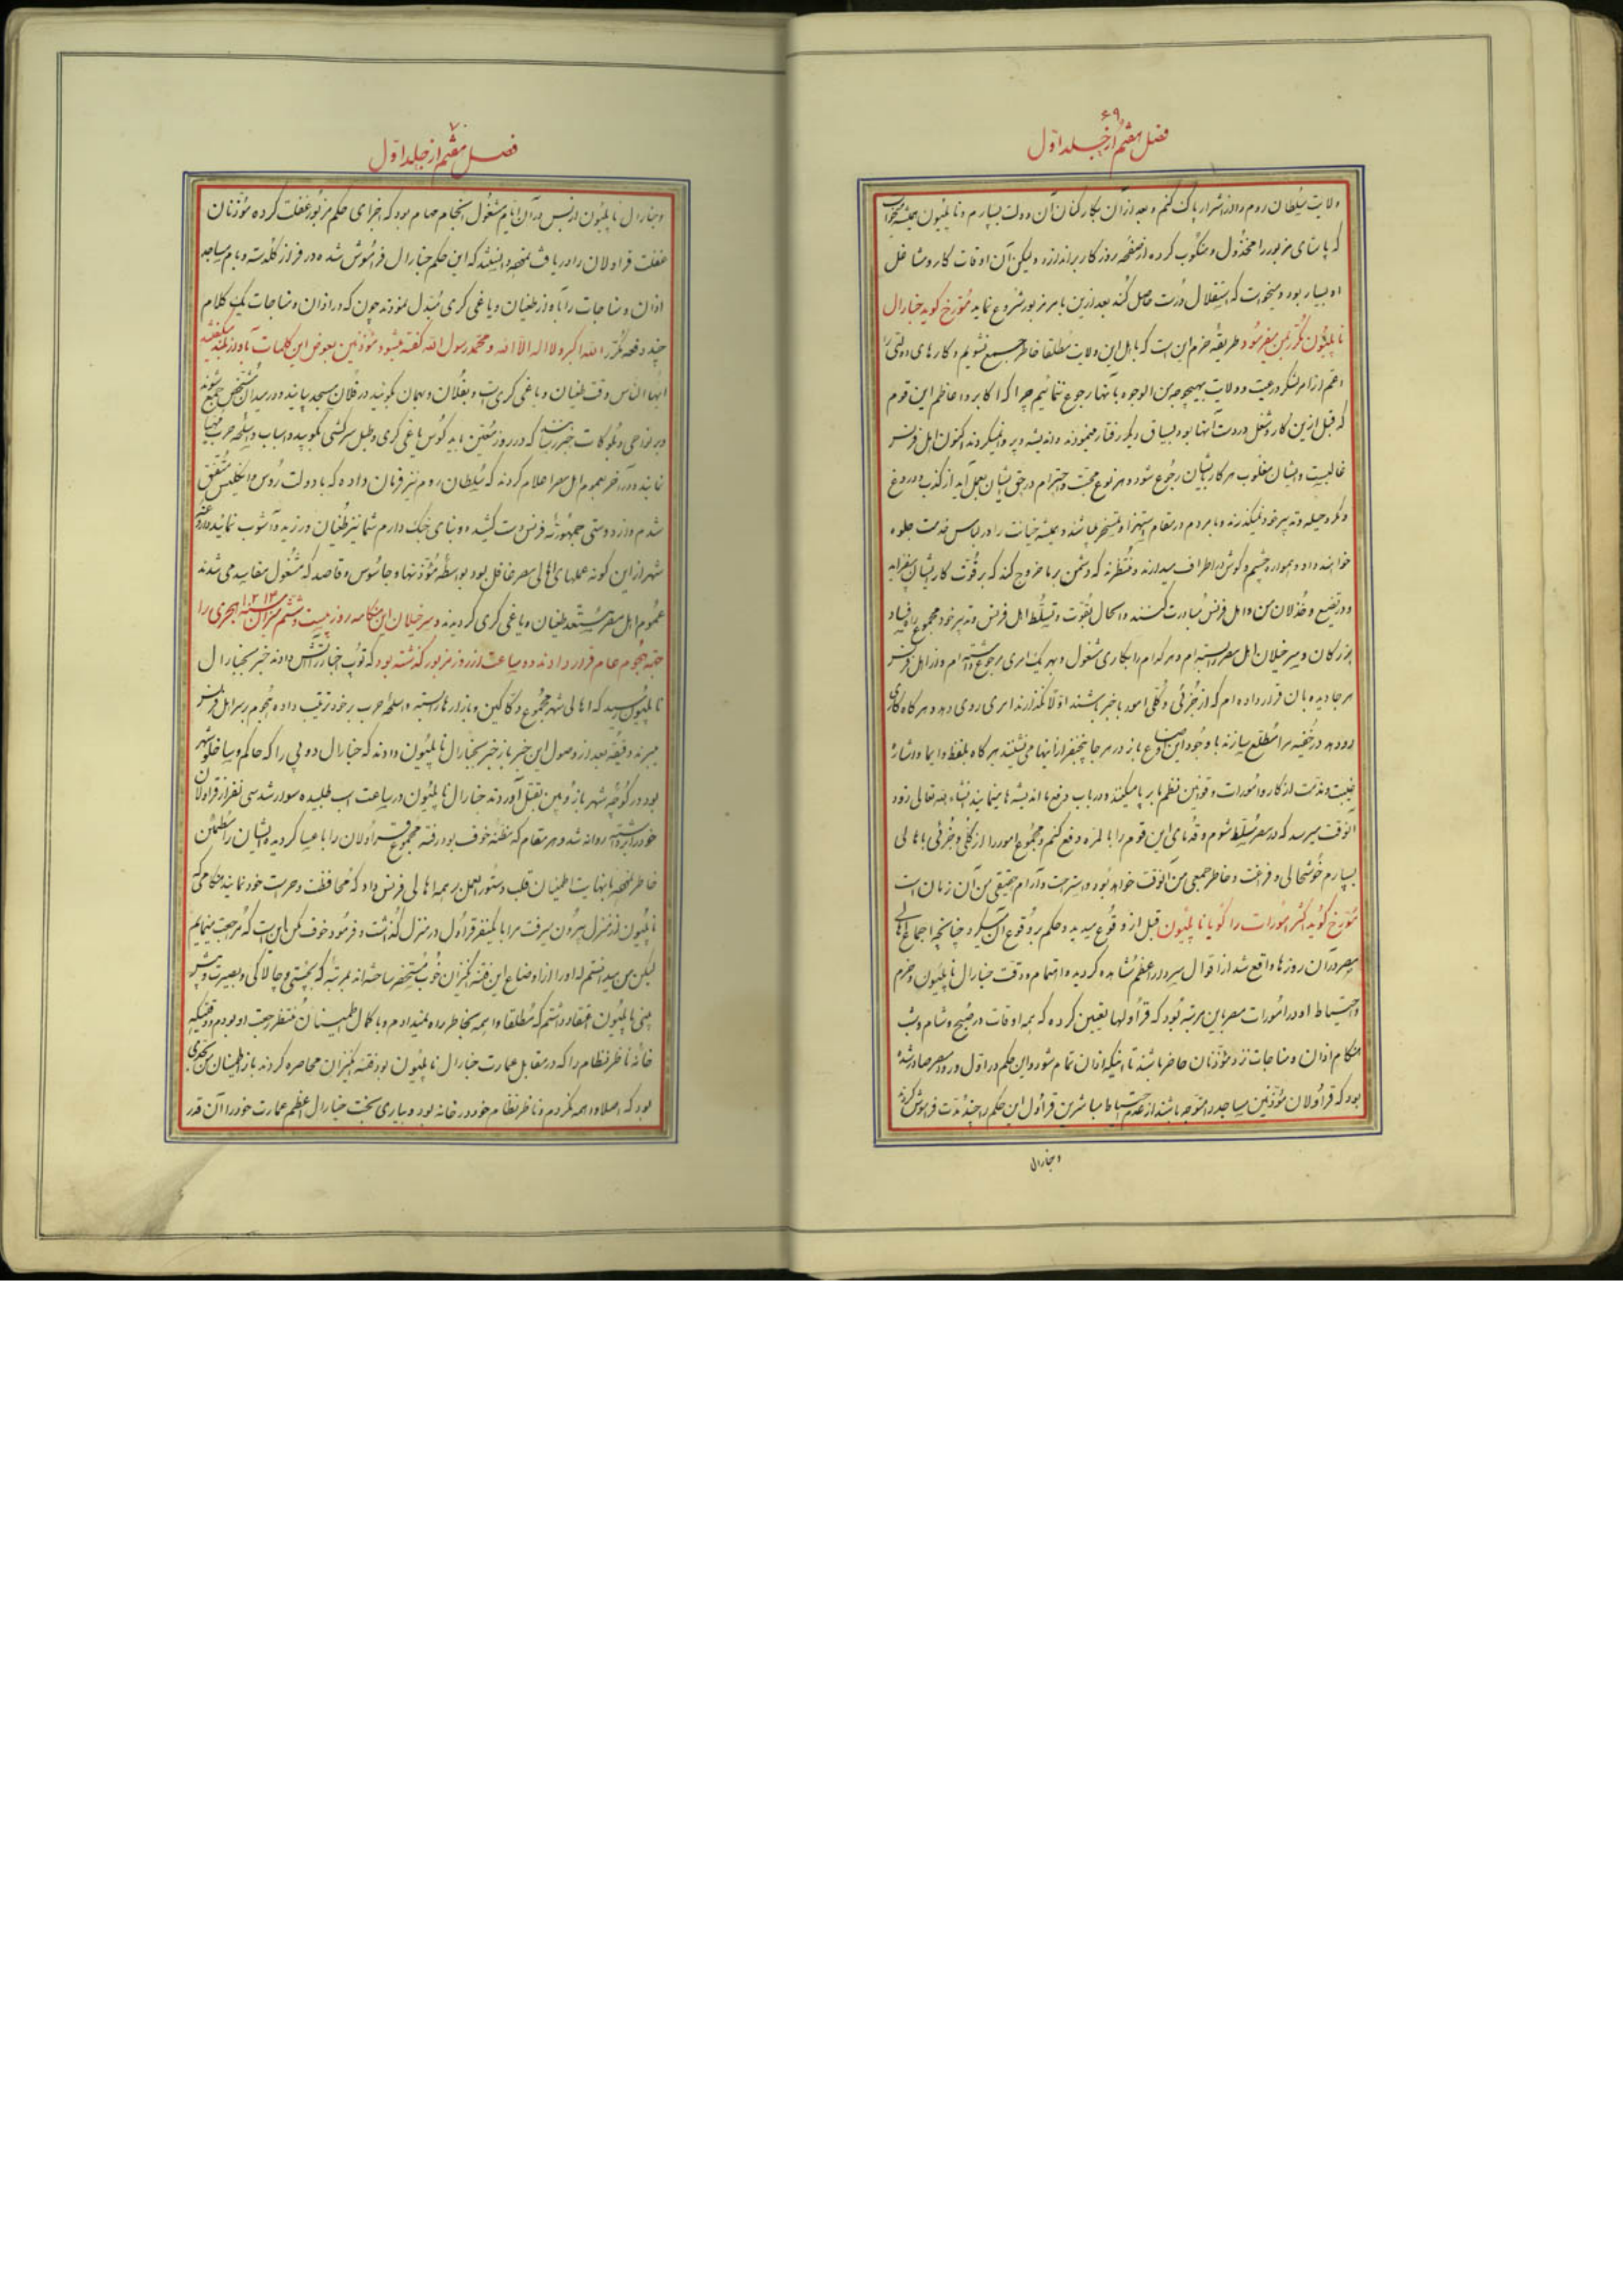 ۶۹
فصل هفتم از جلد اول
ولایت سلطان روم را از اشرار پاک کنم و بعد از آن بکارکنان آن دولت بسپارم و ناپلیون همیشه میخواست
که پاشای مزبور را مخذول و منکوب کرده از صفحه روزکار براندازد ولیکن آن اوقات کار و مشاغل
او بسیار بود و میخواست که استقلال درست حاصل کند بعد ازین بامر مزبور شروع نماید مورخ کوید جنارال
ناپلیون مکرر بمن میفرمود طریقهٔ حزم این است که باهل این ولایت مطلقا خاطر جمع نشویم و کارهای دولتی را
اعم از امر لشکر و رعیت و ولایت بهیچوجه من الوجوه بآنها رجوع ننمائیم چرا که اکابر و اعاظم این قوم
که قبل ازین کار و شغل در دست آنها بود بسیاق دیگر رفتار مینمودند و اندیشه و پروا نمیکردند اکنون اهل فرنس
غالبست و ایشان مغلوب هر کار بایشان رجوع شود و هر نوع محبت و احترام در حق ایشان بعمل آید از کذب و دروغ
و مکر و حیله و تدبیر خود نمیکذرند و با مردم در مقام استهزاء و تمسخر میباشند و همیشه خیانت را در لباس خدمت جلوه
خواهند داد و همواره چشم و کوش در اطراف میدارند و منتظرند که دشمن بر ما خروج کند که بر قوت کار ایشان بیفزاید
و در تضییع و خذلان من و اهل فرنس مبادرت کنند و الحال بقوت و تسلط اهل فرنس و تدبیر خود مجموع راه فساد
بزرکان و سرخیلان اهل مصر را بسته ام و هر کدام را بکاری مشغول و بهر یک امری رجوع داشته ام و از اهل فرنس
هر جا دیده بان قرار داده ام که از جزئی و کلی امور باخبر باشند اولا نکذارند امری روی دهد و هر کاه کاری
رو دهد در خفیه مرا مطلع سازند با وجود این اوضاع باز در هر جا پنجنفر از اینها می نشینند هر کاه بلفظ و ایما و اشاره
غیبت و مذمت از کار و امورات و قوانین نظم ما بر پا میکنند و در باب دفع ما اندیشه ها مینمایند انشاء الله تعالی زود
آنوقت میرسد که در مصر مسلط شوم و قدمای این قوم را بالمره دفع کنم و مجموع امور را از کلی و جزئی باهالی
بسپارم خوشحالی و فراغت و خاطرجمعی من آنوقت خواهد بود و استراحت و آرام حقیقی من آن زمان است
مورخ کوید اکثر امورات را کویا ناپلیون قبل از وقوع میدید و حکم بوقوع آن میکرد چنانچه اجماع اهالی
مصر در آن روزها واقع شد از اقوال سردار اعظم مشاهده کردید و اهتمام و دقت جنارال ناپلیون و حزم
و احتیاط او در امورات مصر باین مرتبه بود که قراولها تعیین کرده که همه اوقات در صبح و شام و شب
هنکام اذان و مناجات نزد مؤذنان حاضر باشند تا اینکه اذان تمام شود و این حکم در اول ورود مصر صادر شده
بود که قراولان مؤذنین مساجد را متوجه باشند از عدم احتیاط مباشرین قراول این حکم را چند مدت فراموش کردند
و جنارال
۷۰
فصل هفتم از جلد اول
و جنارال ناپلیون از بس در آن ایام مشغول انجام مهام بود که اجرای حکم مزبور غفلت کرده مؤذنان
غفلت قراولان را دریافت نمود و دانستند که این حکم جنارال فراموش شده در فراز کلدسته و بام مساجد
اذان و مناجات را بآواز طغیان و یاغی کری مبدل نمودند چون که در اذان و مناجات یک کلام
چند دفعه مکرر الله اکبر و لا اله الا الله و محمد رسول الله کفته میشود مؤذنین بعوض این کلمات بآواز بلند میکفتند
ایها الناس وقت طغیان و یاغی کری است و بفلان و بهمان بکوئید در فلان مسجد بیایند و در میدان مشخص جمع شوند
و بر نواحی و بلوکات خبر رسانند که در روز معین باید کوس یاغی کری و طبل سرکشی بکوبید و اسباب و اسلحه حرب مهیا
نمایند و در آخر بعموم اهل مصر اعلام کردند که سلطان روم نیز فرمان داده که با دولت روس و انکلیس متفق
شدم و از دوستی جمهوریهٔ فرنس دست کشیده و بنای جنک دارم شما نیز طغیان ورزید و آشوب نمائید داروغه
شهر از این کونه عملهای اهالی مصر غافل بود بواسطهٔ مؤذنها و جاسوس و قاصد که مشغول مفاسد می شدند
عموم اهل مصر مستعد طغیان و یاغی کری کردیدند و سرخیلان این هنکامه روز بیست و ششم میزان سنهٔ ۱۲۱۳ هجری را
جهة هجوم عام قرار دادند دو ساعت از روز مزبور کذشته بود که توپ اخبار را آتش دادند خبر بجنارال
ناپلیون رسید که اهالی شهر مجموع دکاکین و بازارها را بسته و اسلحهٔ حرب بر خود ترتیب داده هجوم بر سر اهل فرنس
میبرند دقیقه بعد از وصول این خبر باز خبر بجنارال ناپلیون دادند که جنارال دوپی را که حاکم و ساخلو شهر
بود در کوچهٔ شهر بازوبین بقتل آوردند جنارال ناپلیون در ساعت اسب طلبیده سوار شد سی نفر از قراولان
خود را برداشته روانه شد و هر مقام که مظنهٔ خوف بود رفته مجموع قراولان را با عیسا کردیده ایشان را مطمئن
خاطر نمود با نهایت اطمینان قلب دستورالعمل بر همه اهالی فرنس داد که محافظت و حراست خود نمایند هنکامی که
ناپلیون از منزل بیرون میرفت مرا با یکنفر قراول در منزل کذاشت و فرمود خوف مکن این است که مراجعت مینمایم
لیکن من میدانستم که او را از اوضاع این فتنه انکیزان خوب مستحضر ساخته اند بمرتبهٔ که بچستی و چالاکی و بصیرت و پیش
بینی ناپلیون اعتقاد داشتم که مطلقا واهمه بخاطر راه نمیدادم و با کمال اطمینان منتظر رجعت او بودم و وقتیکه
خانهٔ ناظر نظام را که در مقابل عمارت جنارال ناپلیون بود فتنه انکیزان محاصره کردند باز اطمینان من بحدی
بود که اصلا واهمه نکردم و ناظر نظام خود در خانه بود و بیاری بخت جنارال اعظم عمارت خود را آن قدر